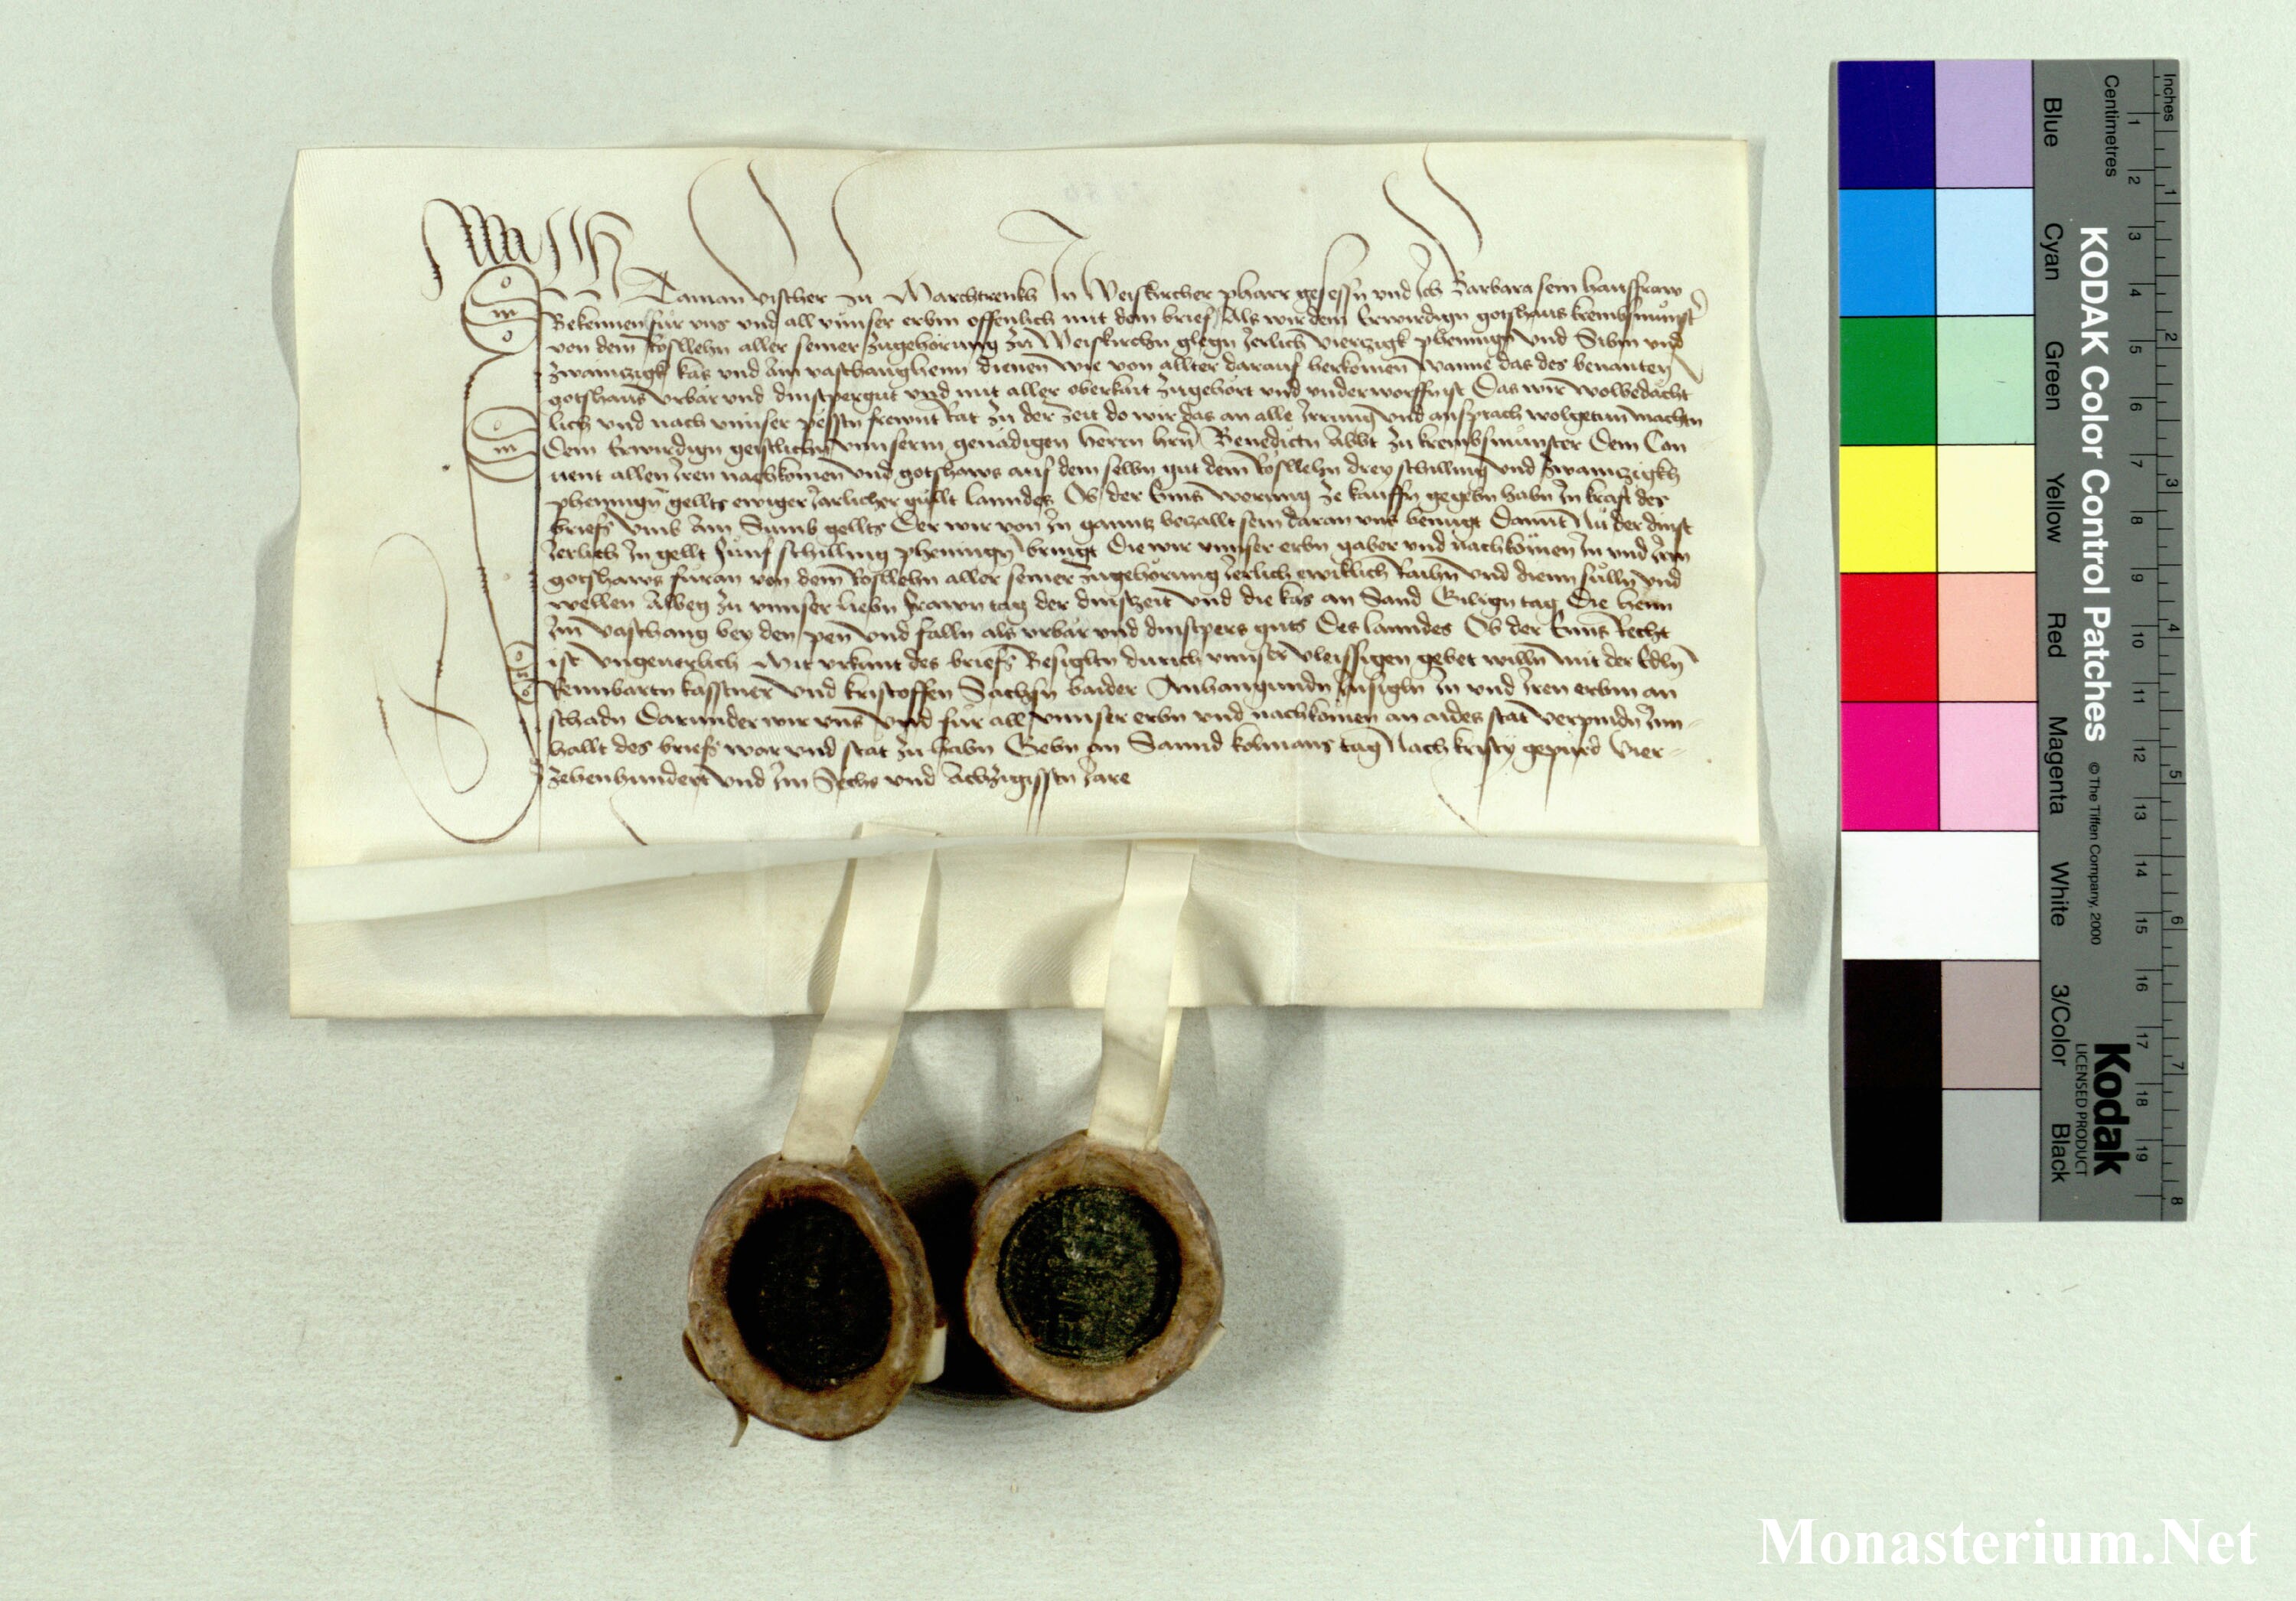 Ich Taman vischer zu Marchtrenkh In Weiskircher pharr gesessn und Ich Barbara sein hausfraw
Bekennen fur uns und all unnser erbm offenlich mit dem brief Als wir dem Erwirdign gotshaus krembsmunst
von dem Roslehn aller seiner zugehorung zu Weiskirchn glegn Jerlich vierzigk phening und Sibm und
zwainzigk kas und ain vaschanghenn dienen wie von allter darauf herkomen wann das des benanten
gotshaus urbar und dinstpergut und mit aller oberkait zugehort und underworffn ist Das wir wolbedacht
lich und nach unnser pesstn frewnt Rat zu der zeit do wir das an alle Irrung und ansprach wolgetun machtn
Dem Erwirdign geistlichn unnserm genadigen herrn hrn Benedictn Abbt zu krembsmunster Dem Con
uent allen Iren nachkomen und gotshaws auf dem selbn gut dem Roslehn drey schilling und zwainzigkh
phennign gellts ewiger Jarlicher gullt lanndes Ob der Enns werung ze kauffn gegebn habn In kraft des
briefs umb ain Sumb gellts Der wir von In gantz bezallt sein daran uns benugt Damit Nu der dinst
Jerlich In gellt funf schilling phening bringt Die wir unnser erbn und nachkomen In und Irm
gotshaws furan von dem Roslehn aller seiner zugehorung Jerlich ewiklich Raihn und dienn sulln und
wellen Albeg zu unnser liebn frawn tag der dinstzeit und die kas an Sand Gilign tag Die henn
Im vaschang bey den pen und falln als urbar und dinstpers guts Des lanndes Ob der Enns Recht
ist ungeuerlich Mit urkunt des briefs Besigltn durich unnser vleissigen gebet willn mit der Edln
kasstner und kristoffen Sachsn baider Anhangundn Insigln In und Iren erbm an
schadn Darunder wir uns und fur all unnser erbn und nachkomen an aides stat verpindn Inn-
hallt des briefs war und stat zu habn Gebn an Sannd kolmans tag Nach kristy gepurd Vier-
zehenhundert und Im Sechs und Achzigisstn Jare
KODAK Color Control Patches © The Tiffen Company, 2000
Kodak
LICENSED PRODUCT
Inches 1 2 3 4 5 6 7 8
Centimetres 1 2 3 4 5 6 7 8 9 10 11 12 13 14 15 16 17 18 19
Blue Cyan Green Yellow Red Magenta White 3/Color Black
Monasterium.Net